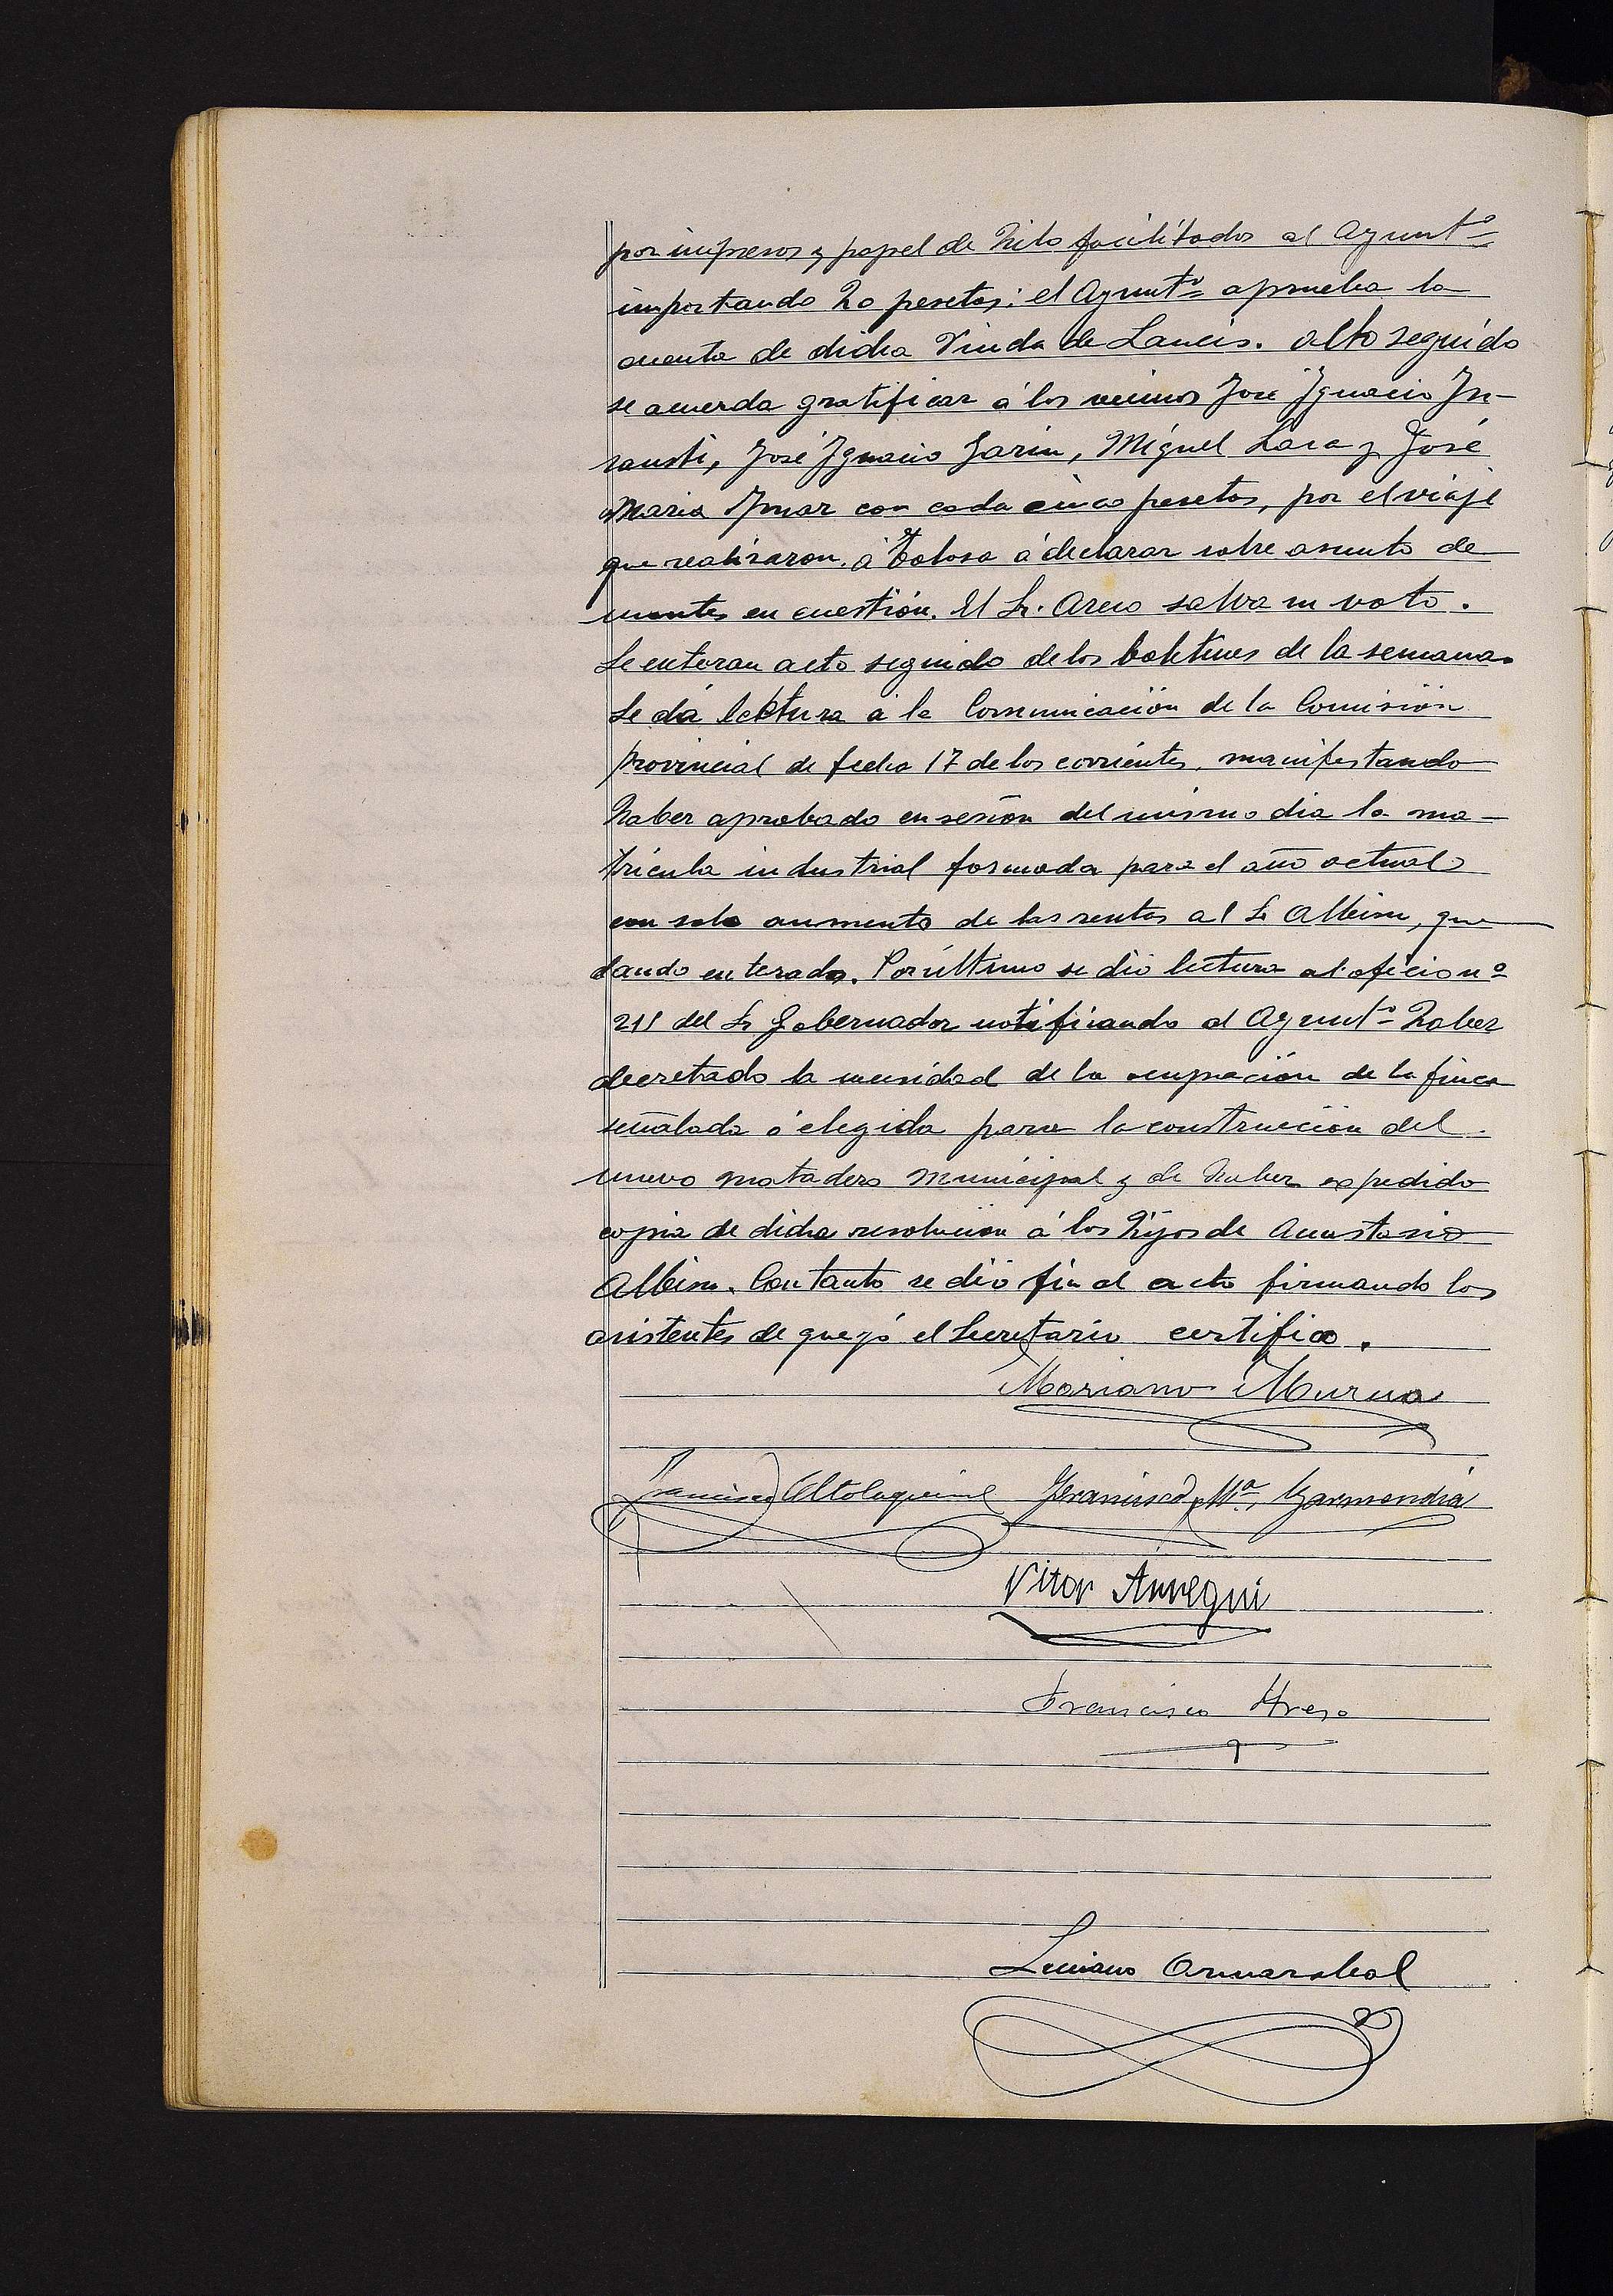 por impresos y papel de hilo facilitados al Ayuntº
importando 20 pesetas; el Ayuntº aprueba la
cuenta de dicha Viuda de Lancis. Acto seguido
se acuerda gratificar á los vecinos José Ignacio In-
sausti, José Ignacio Garin, Miguel Lasa y José
Maria Aymar con cada cinco pesetas, por el viaje
que realizaron á Tolosa á declarar sobre asunto de
montes en cuestión. El Sr. Areso salva su voto.
Se enteran acto seguido de los boletines de la semana.
Se dá lectura á la Comunicación de la Comisión
provincial de fecha 17 de los corrientes, manifestando
haber aprobado en sesión del mismo dia la ma-
trícula industrial formada para el año actual
con solo aumento de las rentas al Sr Albisu, que
dando enterados. Por último se dió lectura al oficio nº
211 del Sr Gobernador notificando al Ayuntº haber
decretado la necesidad de la ocupación de la finca
señalada ó elegida para la construcción del
nuevo matadero municipal y de haber expedido
copia de dicha resolución á los hijos de Anastasio
Albisu. Con tanto se dió fin al acto firmando los
asistentes de que yó el Secretario certifico.
Mariano Murua
Francisco Altolaguirre Francisco Mª Garmendia
Vitor Aurregui
Francisco Areso
Luciano Ormazabal